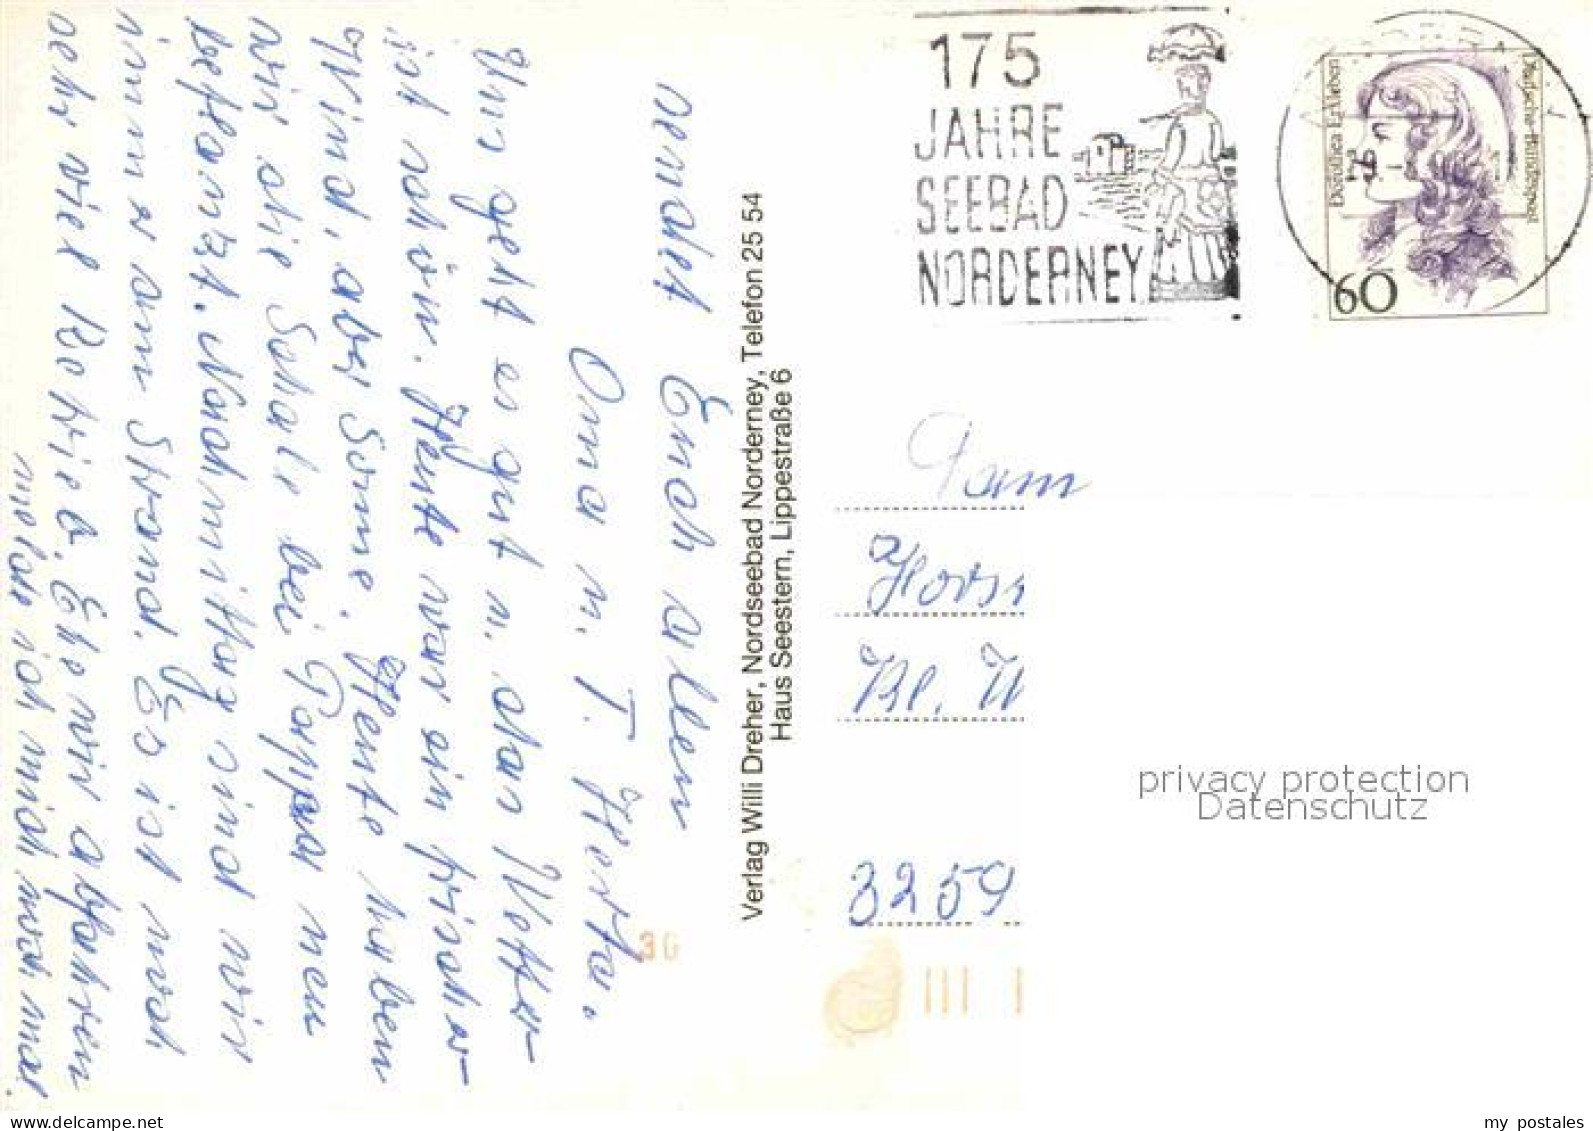 175
JAHRE
SEEBAD
NORDERNEY
Dorothea Erxleben
Deutsche Bundespost
60
Verlag Willi Dreher, Nordseebad Norderney, Telefon 25 54
Haus Seestern, Lippestraße 6
Fam
Kl. W
3259
privacy protection
Datenschutz
36
sendet Euch allen
Oma u. T. Herta.
Uns geht es gut u. das Wetter
ist schön. Heute war ein frischer
Wind, aber Sonne. Heute haben
wir die Schale bei Pappa neu
bepflanzt. Nachmittag sind wir
immer am Strand. Es ist noch
sehr viel Betrieb. Ehe wir abfahren
melde ich mich noch mal.
my postales